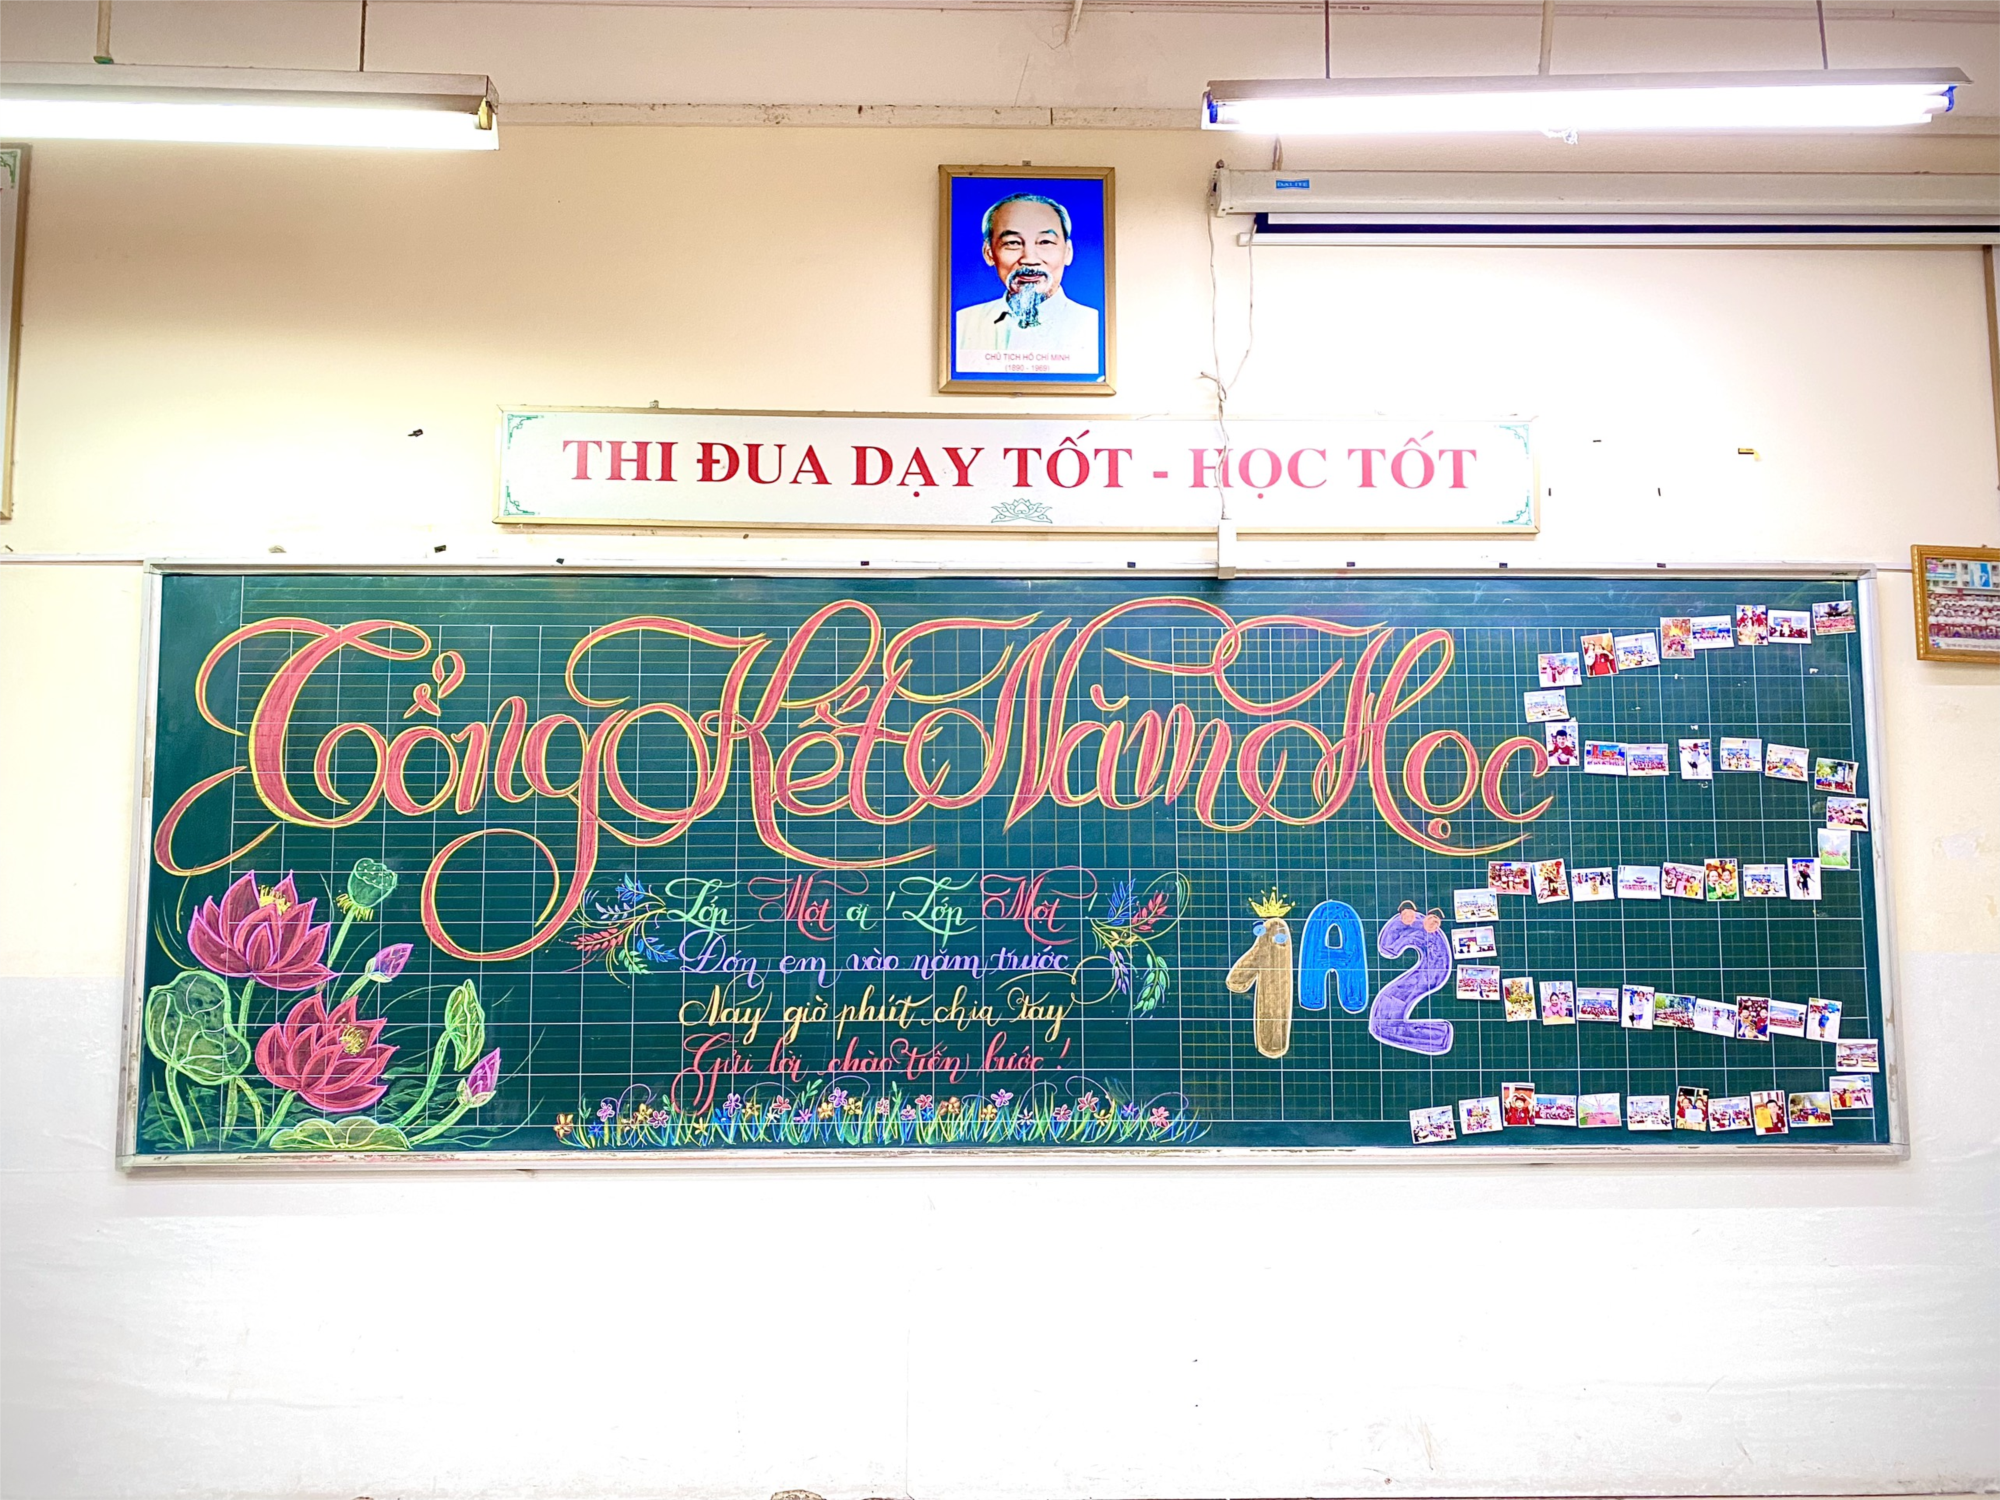 DALITE
CHỦ TỊCH HỒ CHÍ MINH
(1890 - 1969)
THI ĐUA DẠY TỐT - HỌC TỐT
Tổng Kết Năm Học
Lớp Một ơi! Lớp Một!
Đón em vào năm trước
Nay giờ phút chia tay
Gửi lời chào tiến bước!
1A2